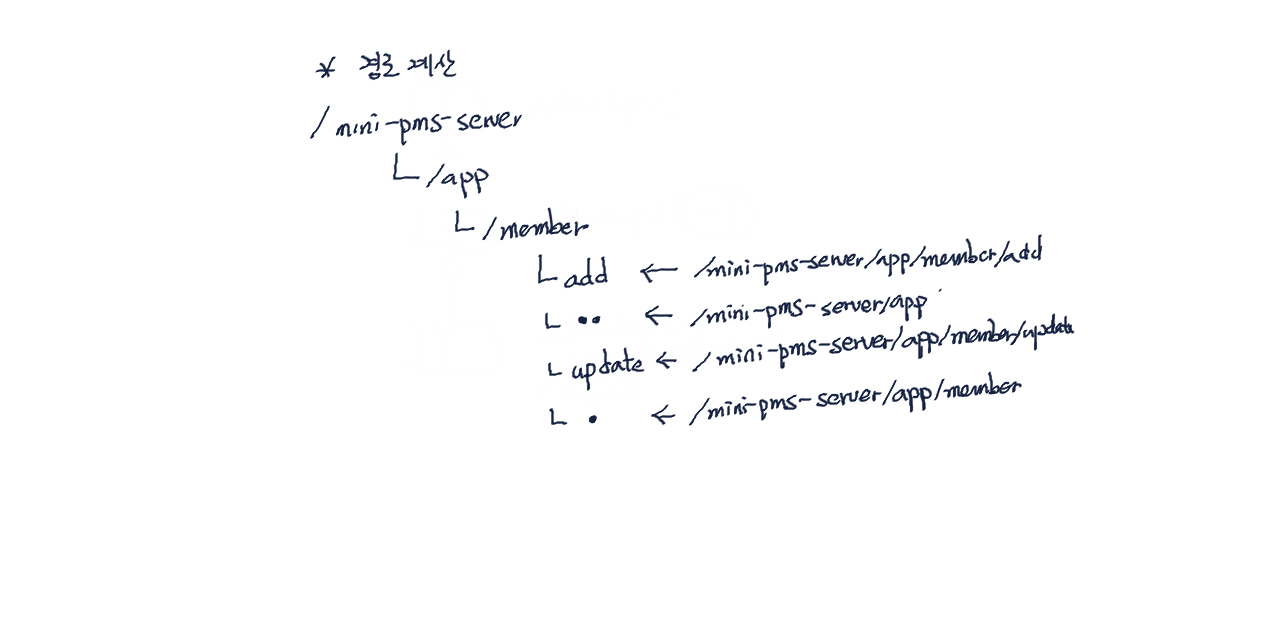 * 경로 계산
/mini-pms-server
└ /app
└ /member
└ add ← /mini-pms-server/app/member/add
└ .. ← /mini-pms-server/app
└ update ← /mini-pms-server/app/member/update
└ . ← /mini-pms-server/app/member